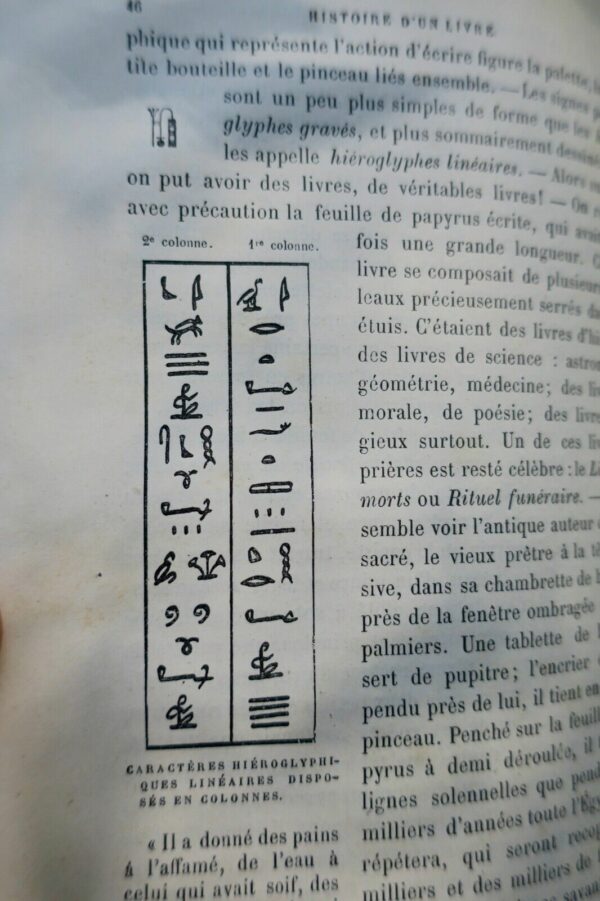 46
HISTOIRE D'UN LIVRE
phique qui représente l'action d'écrire figure la palette,
tite bouteille et le pinceau liés ensemble. — Les signes
sont un peu plus simples de forme que les
glyphes gravés, et plus sommairement
les appelle hiéroglyphes linéaires. — Alors
on put avoir des livres, de véritables livres! — On
avec précaution la feuille de papyrus écrite, qui
2e colonne.
1re colonne.
fois une grande longueur.
livre se composait de
leaux précieusement serrés
étuis. C'étaient des livres
des livres de science :
géométrie, médecine; des
morale, de poésie; des
gieux surtout. Un de ces
prières est resté célèbre : le
morts ou Rituel funéraire. —
semble voir l'antique auteur
sacré, le vieux prêtre à la
sive, dans sa chambrette de
près de la fenêtre ombragée
palmiers. Une tablette de
sert de pupitre; l'encrier
pendu près de lui, il tient
pinceau. Penché sur la
pyrus à demi déroulée, il
lignes solennelles que
milliers d'années toute
répétera, qui seront
milliers et des milliers de
CARACTÈRES HIÉROGLYPHI-
QUES LINÉAIRES DISPO-
SÉS EN COLONNES.
« Il a donné des pains
à l'affamé, de l'eau à
celui qui avait soif, des